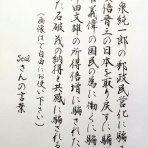 泉純一郎の「郵政民営化」に騙さ
倍晋三の日本を取り戻すに騙
義偉の国民の為に働くに騙
田文雄の所得倍増に騙された
た石破茂の納得と共感に騙される
(画像はご自由にお使い下さい)
Scalさんの言葉